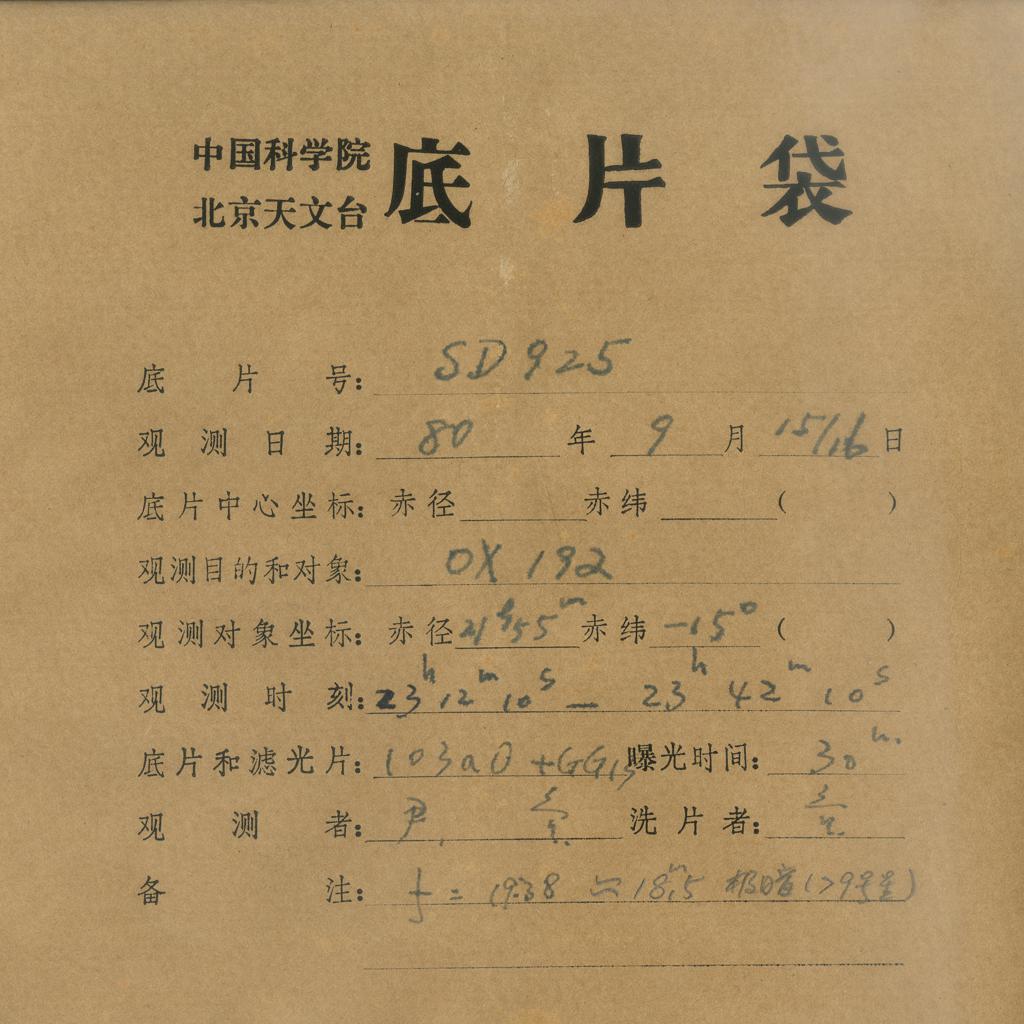 中国科学院
北京天文台
底片袋
底片号: SD 925
观测日期: 80 年 9 月 15/16 日
底片中心坐标: 赤径 赤纬 ( )
观测目的和对象: OX 192
观测对象坐标: 赤径 21h55m 赤纬 -15° ( )
观测时刻: 23h 12m 10s — 23h 42m 10s
底片和滤光片: 103aO + GG13 曝光时间: 30m.
观测者: 尹. 洗片者:
备注: f = 19.38 18.5 极暗 (>9号星)